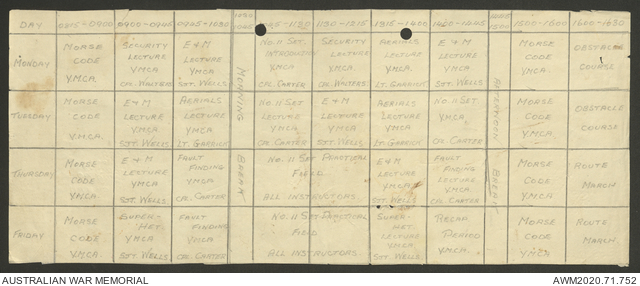 DAY 0815-0900 0900-0945 0945-1030 1030 1045 1130-1215 1315-1400 1400-1445 1500-1600 1600-1630
MONDAY
MORSE
CODE
Y.M.C.A.
SECURITY
LECTURE
YMCA
CPL. WINTERS
E & M
LECTURE
YMCA
SJT. WELLS
MORNING
BREAK
No. 11 SET.
INTRODUCTORY
YMCA
CPL. CARTER
SECURITY
LECTURE
YMCA
CPL. WINTERS
AERIALS
LECTURE
YMCA.
LT. GARRICK
E & M
LECTURE
YMCA
SJT. WELLS
AFTERNOON
BREAK
MORSE
CODE
YMCA
OBSTACLE
COURSE
TUESDAY
MORSE
CODE
Y.M.C.A.
E & M
LECTURE
YMCA
SJT. WELLS
AERIALS
LECTURE
YMCA
LT. GARRICK
No. 11 SET
LECTURE
YMCA
CPL. CARTER
E & M
LECTURE
YMCA
SJT. WELLS
AERIALS
LECTURE
YMCA
LT. GARRICK
No. 11 SET.
YMCA
CPL. CARTER
MORSE
CODE
YMCA
OBSTACLE
COURSE
THURSDAY
MORSE
CODE
YMCA
E & M
LECTURE
YMCA
SJT. WELLS
FAULT
FINDING
YMCA
CPL. CARTER
No. 11 SET PRACTICAL
FIELD
ALL INSTRUCTORS.
E & M
LECTURE
YMCA
SJT. WELLS
FAULT
FINDING
LECTURE
YMCA
CPL. CARTER
MORSE
CODE
YMCA
ROUTE
MARCH
FRIDAY
MORSE
CODE
YMCA
SUPER-
HET
YMCA
SJT. WELLS
FAULT
FINDING
YMCA
CPL. CARTER
No. 11 SET PRACTICAL
FIELD
ALL INSTRUCTORS
SUPER-
HET
LECTURE
YMCA
SJT. WELLS
RECAP
PERIOD
YMCA.
MORSE
CODE
YMCA
ROUTE
MARCH
AUSTRALIAN WAR MEMORIAL AWM2020.71.752